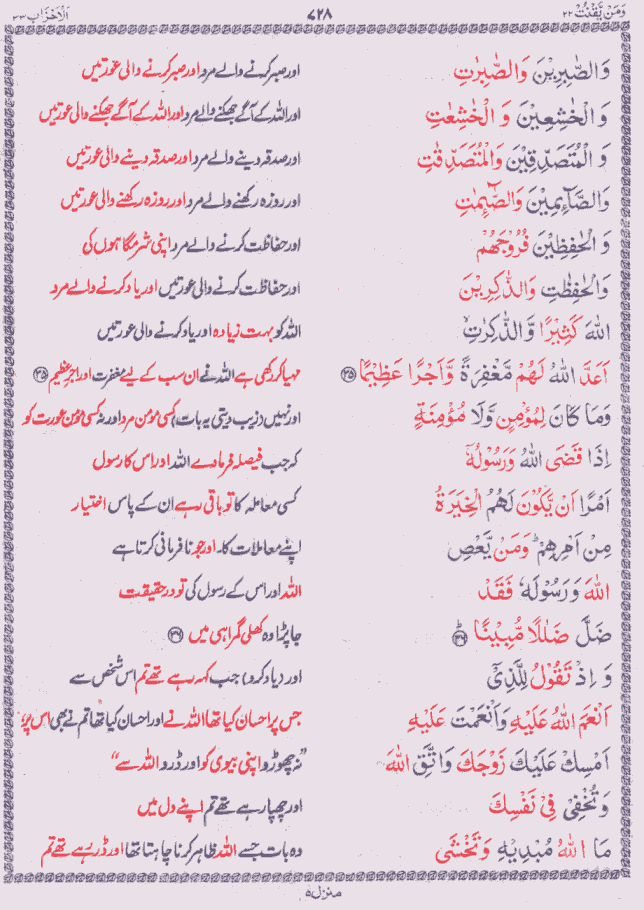 وَمَنْ يَّقْنُتْ ٢٢ ٤٢٨ اَلْاَحْزَابِ ٣٣
وَالصّٰبِرِيْنَ وَالصّٰبِرٰتِ اور صبر کرنے والے مرد اور صبر کرنے والی عورتیں
وَ الْخٰشِعِيْنَ وَ الْخٰشِعٰتِ اور اللہ کے آگے جھکنے والے مرد اور اللہ کے آگے جھکنے والی عورتیں
وَ الْمُتَصَدِّقِيْنَ وَالْمُتَصَدِّقٰتِ اور صدقہ دینے والے مرد اور صدقہ دینے والی عورتیں
وَالصَّآىِٕمِيْنَ وَالصّٰٓىِٕمٰتِ اور روزہ رکھنے والے مرد اور روزہ رکھنے والی عورتیں
وَ الْحٰفِظِيْنَ فُرُوْجَهُمْ اور حفاظت کرنے والے مرد اپنی شرمگاہوں کی
وَالْحٰفِظٰتِ وَالذّٰكِرِيْنَ اور حفاظت کرنے والی عورتیں اور یاد کرنے والے مرد
اللهَ كَثِيْرًا وَّ الذّٰكِرٰتِ اللہ کو بہت زیادہ اور یاد کرنے والی عورتیں
اَعَدَّ اللهُ لَهُمْ مَّغْفِرَةً وَّاَجْرًا عَظِيْمًا ٣٥ مہیا کر رکھی ہے اللہ نے ان سب کے لیے مغفرت اور اجر عظیم ٣٥
وَمَا كَانَ لِمُؤْمِنٍ وَّلَا مُؤْمِنَةٍ اور نہیں (زیب دیتی یہ بات) کسی مومن مرد اور نہ کسی مومن عورت کو
اِذَا قَضَى اللهُ وَرَسُوْلُهٗٓ کہ جب فیصلہ فرما دے اللہ اور اس کا رسول
اَمْرًا اَنْ يَّكُوْنَ لَهُمُ الْخِيَرَةُ کسی معاملہ کا تو باقی رہے ان کے پاس اختیار
مِنْ اَمْرِهِمْ ؕ وَمَنْ يَّعْصِ اپنے معاملات کا۔ اور جو نافرمانی کرتا ہے
اللهَ وَرَسُوْلَهٗ فَقَدْ اللہ اور اس کے رسول کی تو درحقیقت
ضَلَّ ضَلٰلًا مُّبِيْنًا ؕ ٣٦ جا پڑا وہ کھلی گمراہی میں ٣٦
وَ اِذْ تَقُوْلُ لِلَّذِيْٓ اور (یاد کرو) جب کہہ رہے تھے تم اس شخص سے
اَنْعَمَ اللهُ عَلَيْهِ وَاَنْعَمْتَ عَلَيْهِ جس پر احسان کیا تھا اللہ نے اور احسان کیا تھا تم نے بھی اس پر؛
اَمْسِكْ عَلَيْكَ زَوْجَكَ وَاتَّقِ اللهَ "نہ چھوڑو اپنی بیوی کو اور ڈرو اللہ سے"
وَتُخْفِيْ فِيْ نَفْسِكَ اور چھپا رہے تھے تم اپنے دل میں
مَا اللهُ مُبْدِيْهِ وَتَخْشَى وہ بات جسے اللہ ظاہر کرنا چاہتا تھا اور ڈر رہے تھے تم
منزل ٥